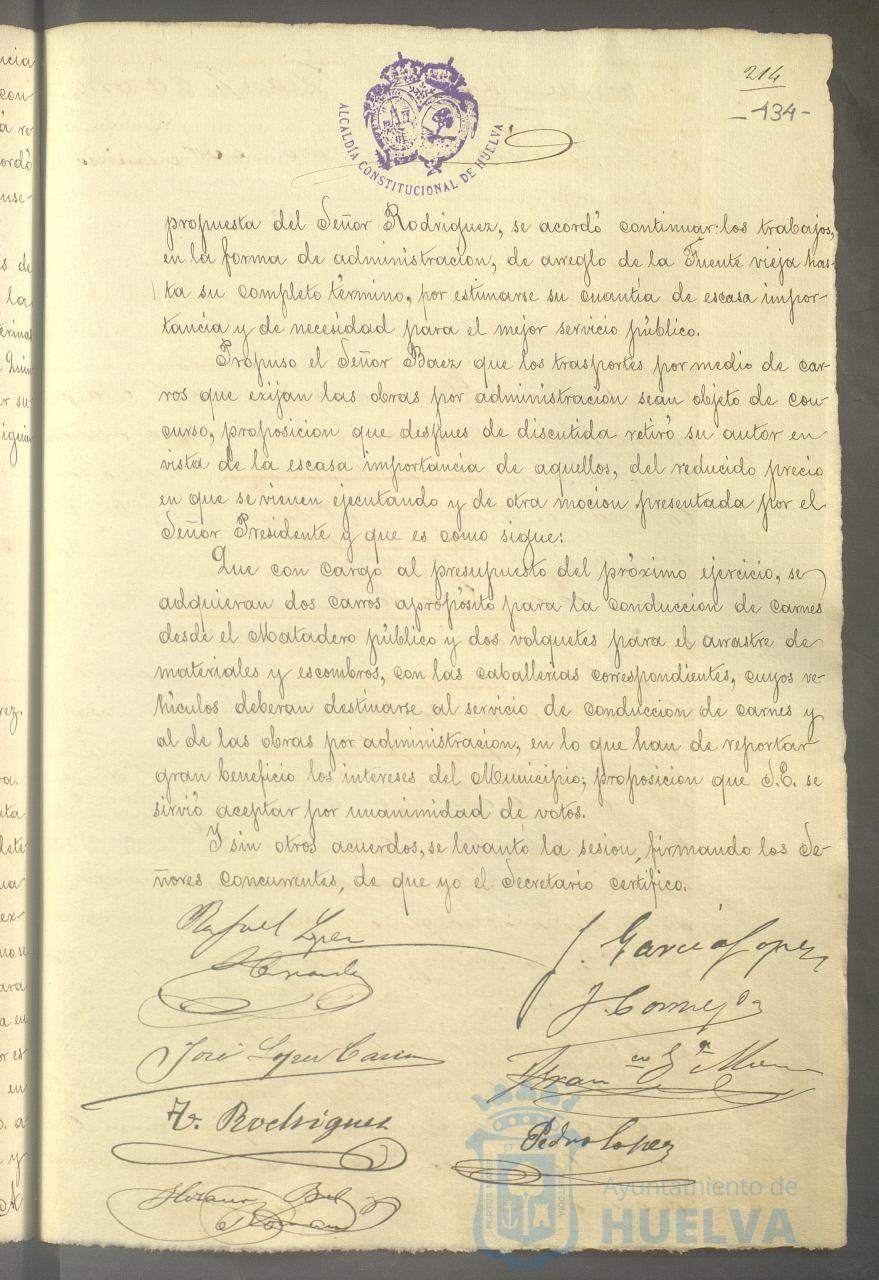 214
-134-
ALCALDÍA CONSTITUCIONAL DE HUELVA
propuesta del Señor Rodriguez, se acordó continuar los trabajos,
en la forma de administracion, de arreglo de la Fuente vieja has-
ta su completo término, por estimarse su cuantía de escasa impor-
tancia y de necesidad para el mejor servicio público.
Propuso el Señor Baez que los trasportes por medio de car-
ros que exijan las obras por administracion sean objeto de con-
curso, proposicion que despues de discutida retiró su autor en
vista de la escasa importancia de aquellos, del reducido precio
en que se vienen ejecutando y de otra mocion presentada por el
Señor Presidente y que es como sigue:
Que con cargo al presupuesto del próximo ejercicio, se
adquieran dos carros apropósito para la conduccion de carnes
desde el Matadero público y dos volquetes para el arrastre de
materiales y escombros, con las caballerias correspondientes, cuyos ve-
hículos deberan destinarse al servicio de conduccion de carnes y
al de las obras por administracion, en lo que han de reportar
gran beneficio los intereses del Municipio; proposicion que S.E. se
sirvió aceptar por unanimidad de votos.
Y sin otros acuerdos, se levantó la sesion, firmando los Se-
ñores concurrentes, de que yo el Secretario certifico.
Rafael Lopez
Hernandez
J. García Lopez
J. Cornejo
José Lopez
Fran co
F. Rodriguez
Pedro Lopez
Ayuntamiento de
HUELVA